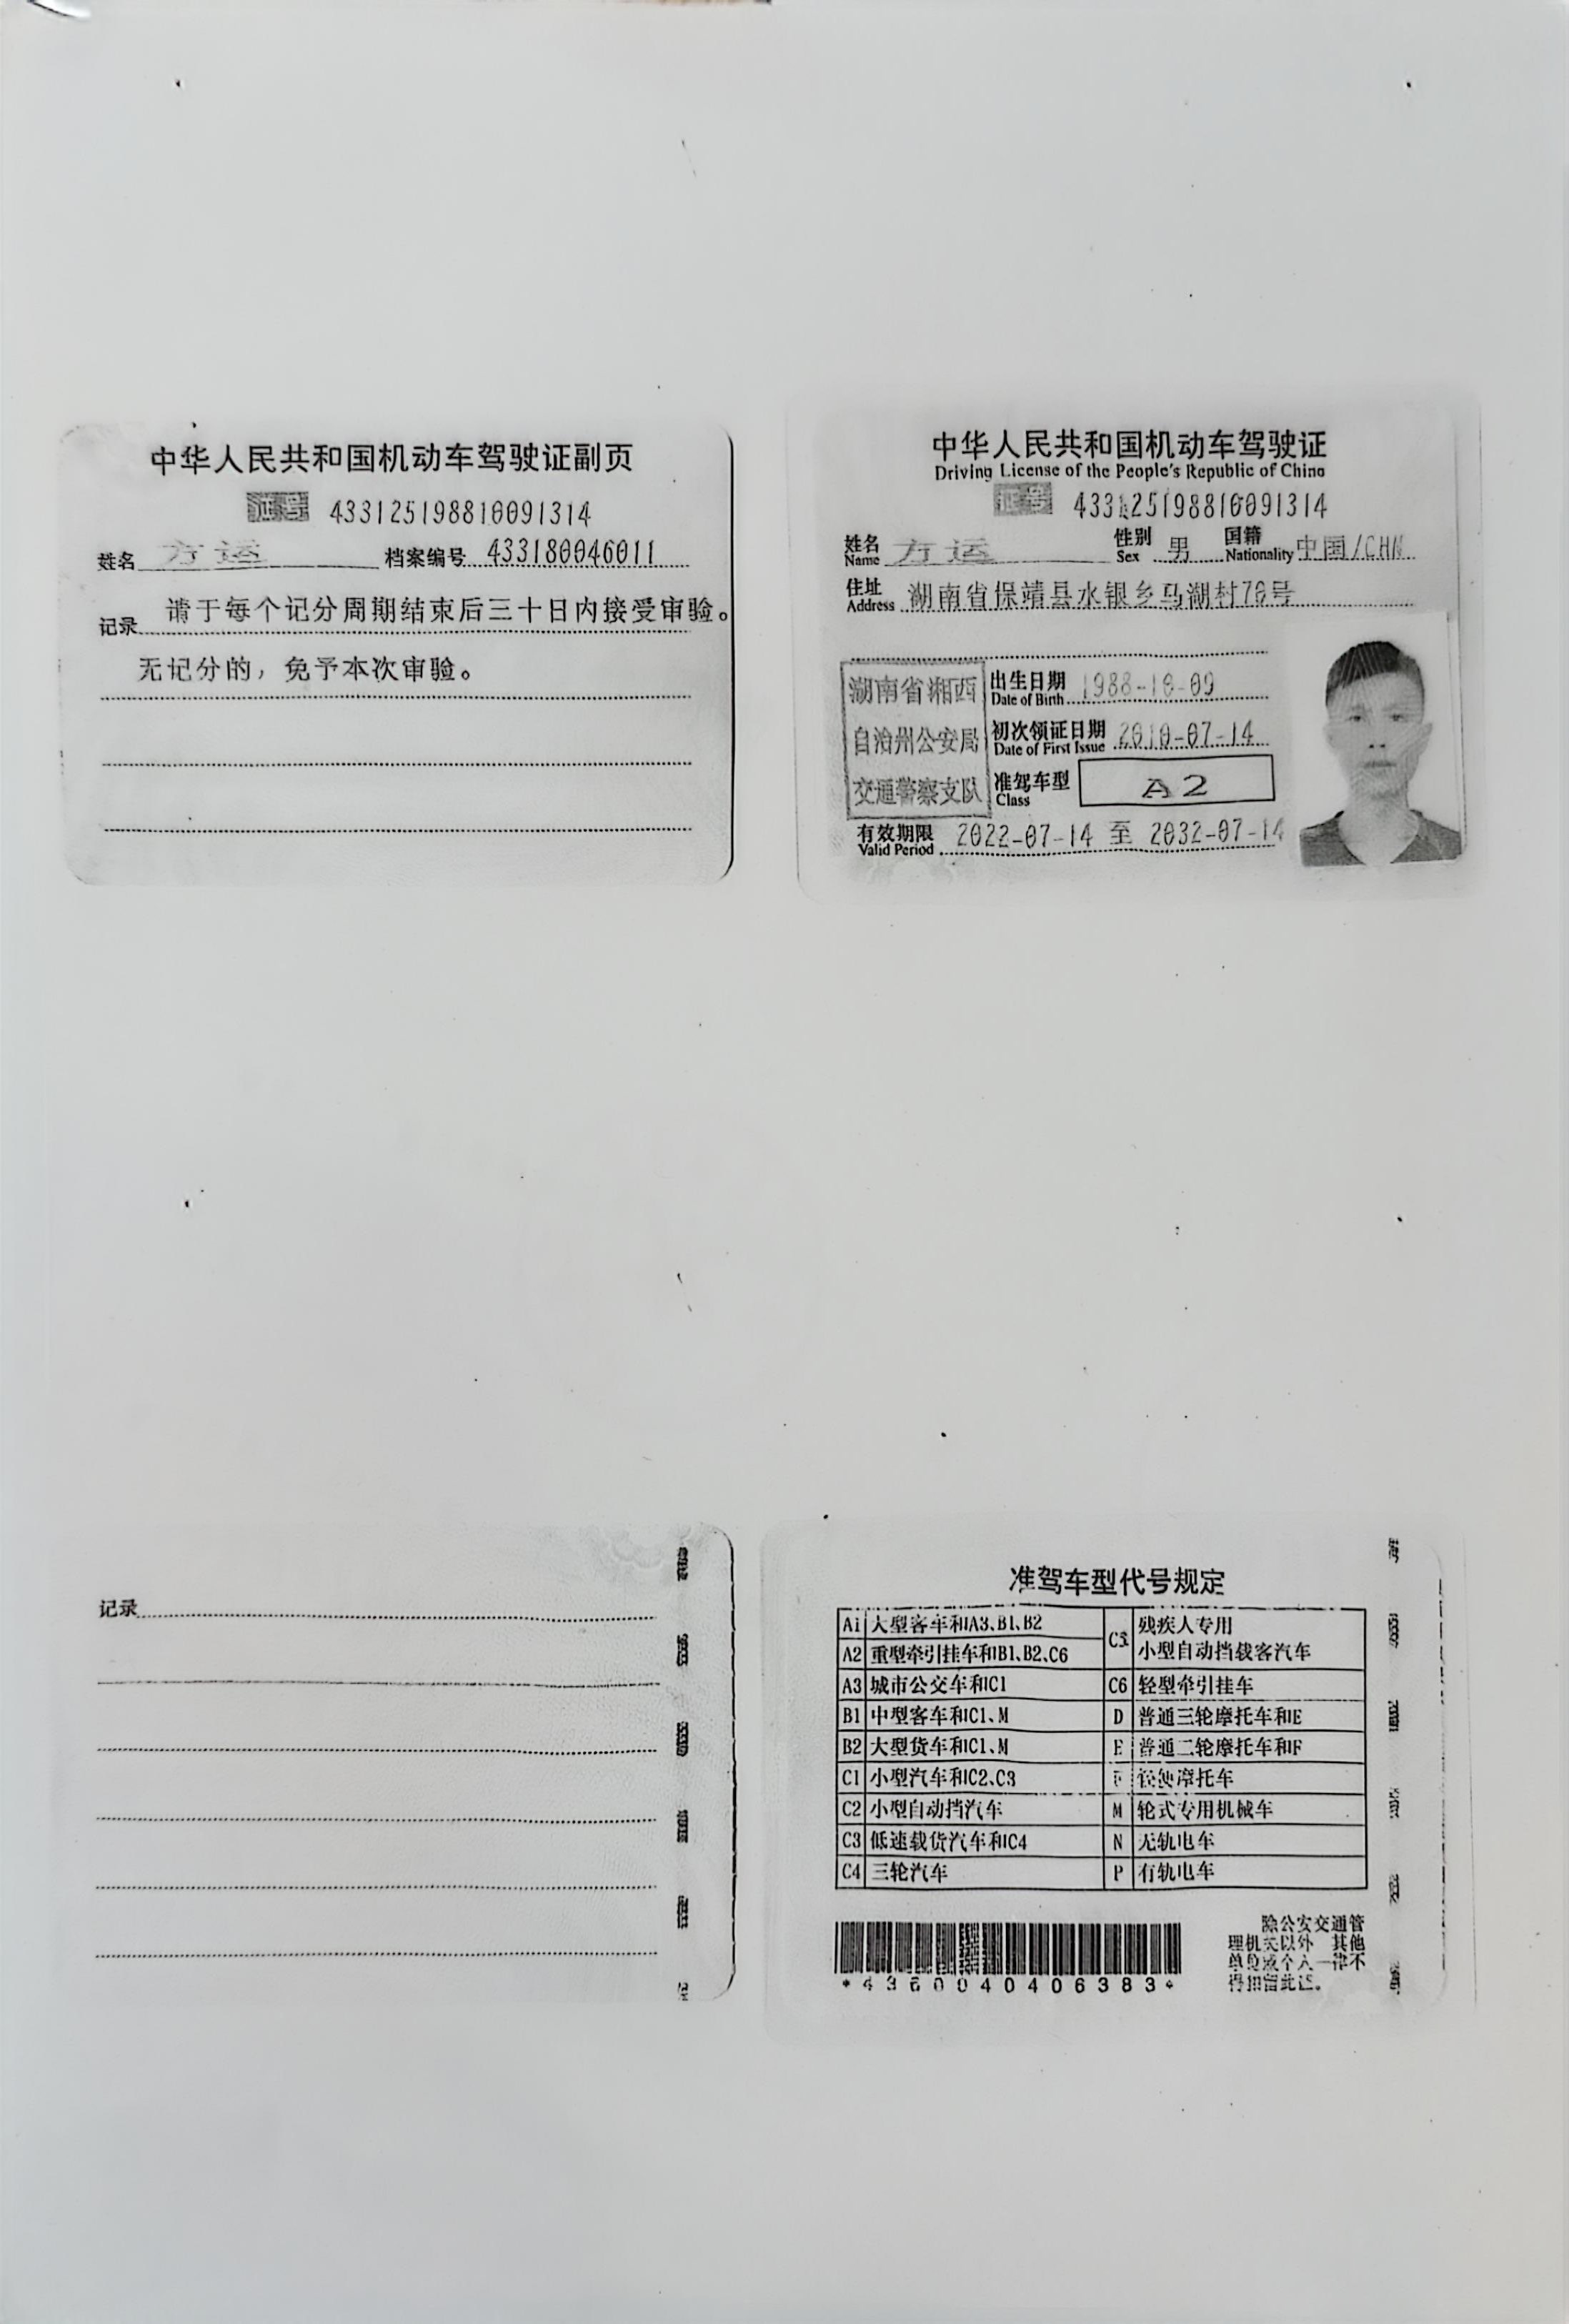 中华人民共和国机动车驾驶证副页
证号 433125198810091314
姓名 方运 档案编号 433180046011
记录 请于每个记分周期结束后三十日内接受审验。
无记分的，免予本次审验。
中华人民共和国机动车驾驶证
Driving License of the People's Republic of China
证号 433125198810091314
姓名 方运 性别 男 国籍 中国/CHN
Name Sex Nationality
住址 湖南省保靖县水银乡马湖村70号
Address
湖南省湘西
自治州公安局
交通警察支队
出生日期 1988-10-09
Date of Birth
初次领证日期 2010-07-14
Date of First Issue
准驾车型 A2
Class
有效期限 2022-07-14 至 2032-07-14
Valid Period
记录
准驾车型代号规定
A1 大型客车和A3、B1、B2
A2 重型牵引挂车和B1、B2、C6
A3 城市公交车和C1
B1 中型客车和C1、M
B2 大型货车和C1、M
C1 小型汽车和C2、C3
C2 小型自动挡汽车
C3 低速载货汽车和C4
C4 三轮汽车
C5 残疾人专用
小型自动挡载客汽车
C6 轻型牵引挂车
D 普通三轮摩托车和E
E 普通二轮摩托车和F
F 轻便摩托车
M 轮式专用机械车
N 无轨电车
P 有轨电车
*4360040406383*
除公安交通管
理机关以外 其他
单位或个人一律不
得扣留此证。